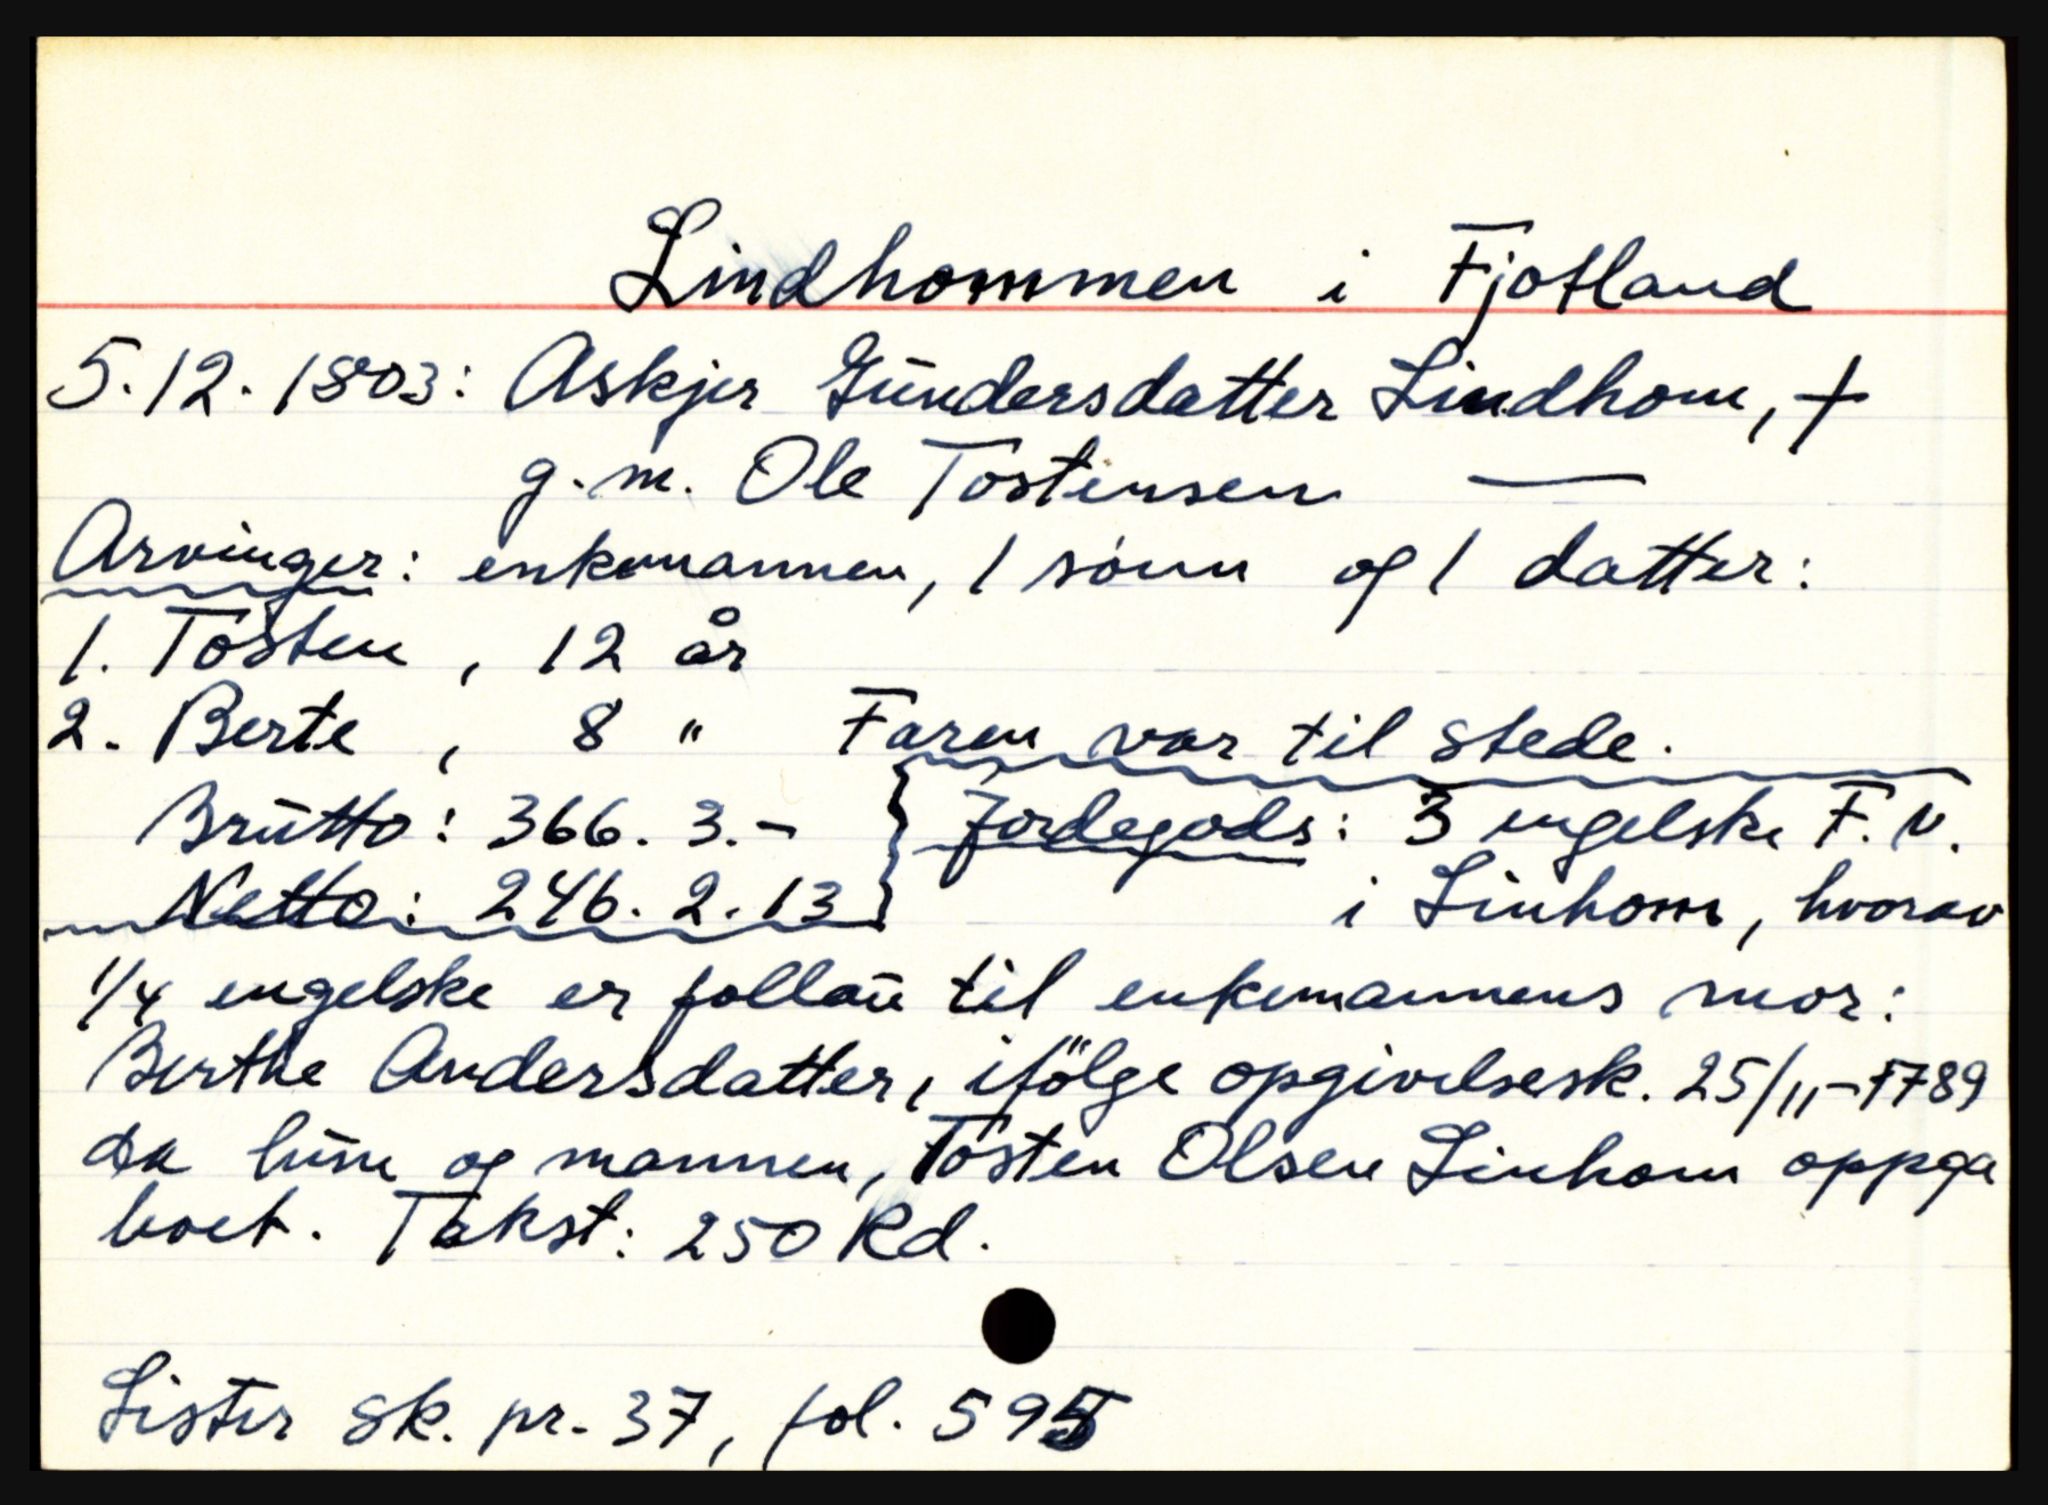 Lindhommen i Fjotland
5.12.1803: Askjer Gundersdatter Lindhom, †
g.m. Ole Tostensen —
Arvinger: enkemannen, 1 sønn og 1 datter:
1. Tosten, 12 år
2. Berte, 8 " Faren var til stede.
Brutto: 366. 3.- } Jordegods: 3 engelske F.V.
Netto: 246. 2. 13 } i Linhom, hvorav
1/4 engelske er follau til enkemannens mor:
Berthe Andersdatter, ifölge opgivelsesk. 25/11-1789
da hun og mannen, Tosten Olsen Linhom oppga
boet. Takst: 250 Rd.
Lister sk. pr. 37, fol. 595